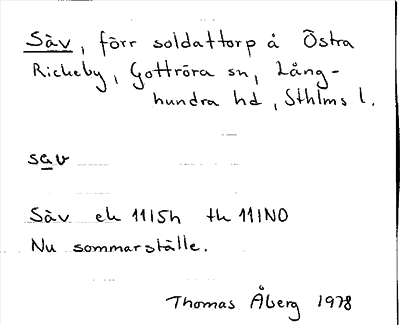 Säv, förr soldattorp å Östra
Rickeby, Gottröra sn, Lång-
hundra hd, Sthlms l.
sav
Säv ek 11I5h tk 11INO
Nu sommarställe.
Thomas Åberg 1978